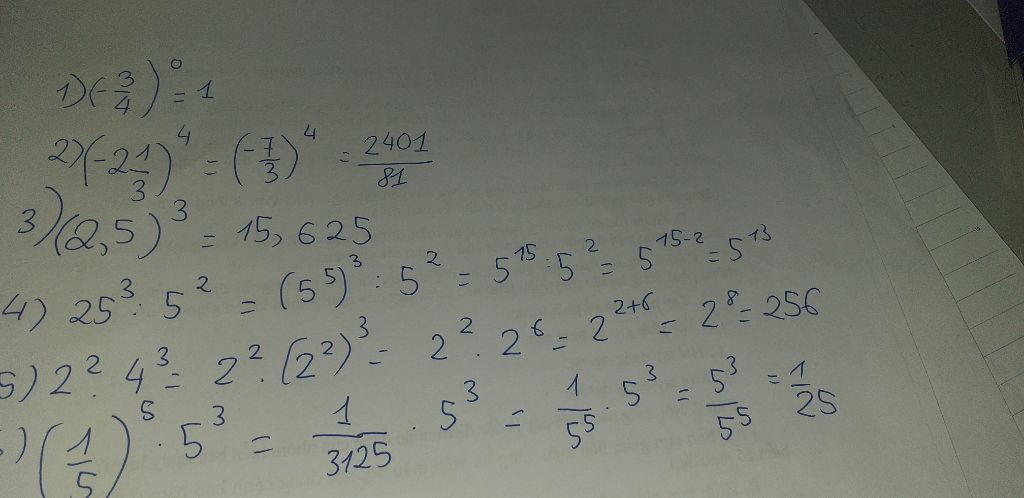 1) (-3/4)^0 = 1
2) (-2 1/3)^4 = (-7/3)^4 = 2401/81
3) (2,5)^3 = 15,625
4) 25^3 : 5^2 = (5^5)^3 : 5^2 = 5^15 : 5^2 = 5^15-2 = 5^13
5) 2^2 . 4^3 = 2^2 . (2^2)^3 = 2^2 . 2^6 = 2^2+6 = 2^8 = 256
) (1/5)^5 . 5^3 = 1/3125 . 5^3 = 1/5^5 . 5^3 = 5^3/5^5 = 1/25